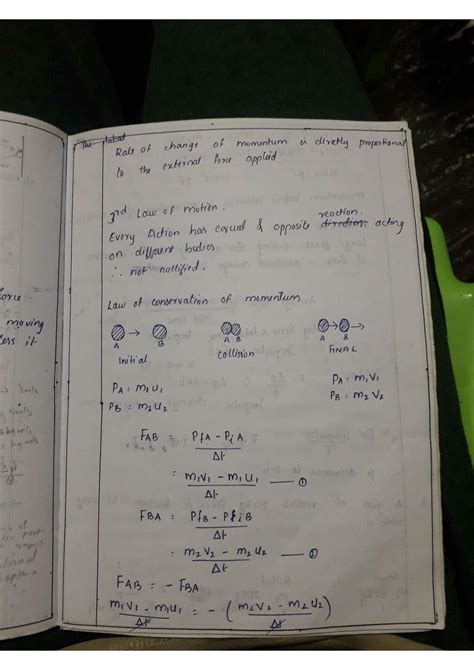 The
Rate of change of momentum is diretly proportional
to the external force applied
3rd Law of motion.
Every Action has equal & opposite reaction acting
on different bodies
∴ not nullified.
Law of conservation of momentum
A → B
A B
A → B →
initial
collision
FINAL
PA = m1U1
PB = m2U2
PA = m1V1
PB = m2V2
FAB = PfA - PiA / Δt
= m1V1 - m1U1 / Δt — ①
FBA = PfB - PiB / Δt
= m2V2 - m2U2 / Δt — ①
FAB = - FBA
m1V1 - m1U1 / Δt = - (m2V2 - m2U2 / Δt)
orce
moving
less it